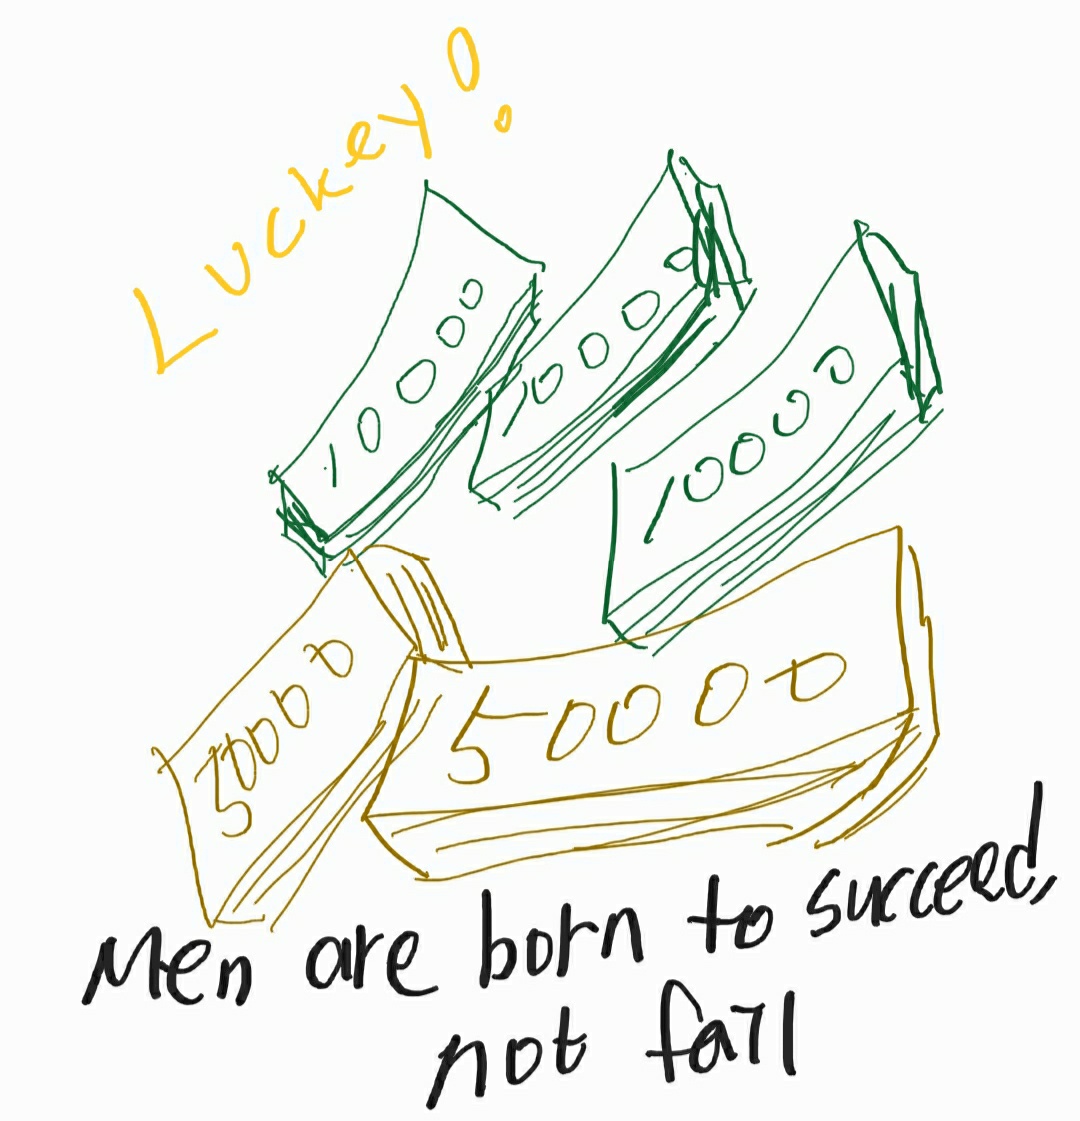 Luckey!
10000
10000
10000
50000
50000
Men are born to succeed,
not fail